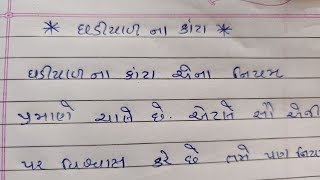 * ઘડીયાળ ના કાંટા *
ઘડીયાળ ના કાંટા એના નિયમ
પ્રમાણે ચાલે છે. એટલે સૌ એની
પર વિશ્વાસ કરે છે તમે પણ